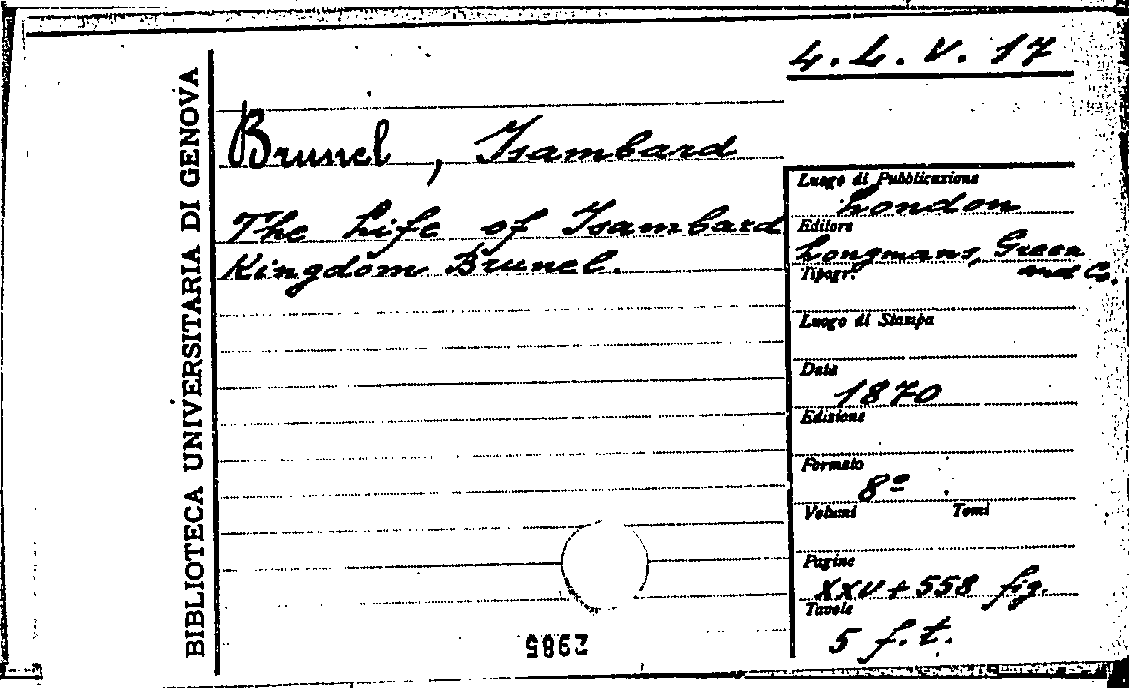 4. L. V. 17
BIBLIOTECA UNIVERSITARIA DI GENOVA
Brunel, Isambard
The Life of Isambard
Kingdom Brunel.
Luogo di Pubblicazione
London
Editore
Longmans, Green
and Co.
Tipogr.
Luogo di Stampa
Data
1870
Edizione
Formato
8º
Volumi Tomi
Pagine
XXV+558 fig.
Tavole
5 f.t.
2985